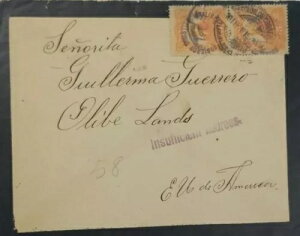 Señorita
Guillerma Guerrero
Olibe Lands
Insufficient Address.
58
EU de America